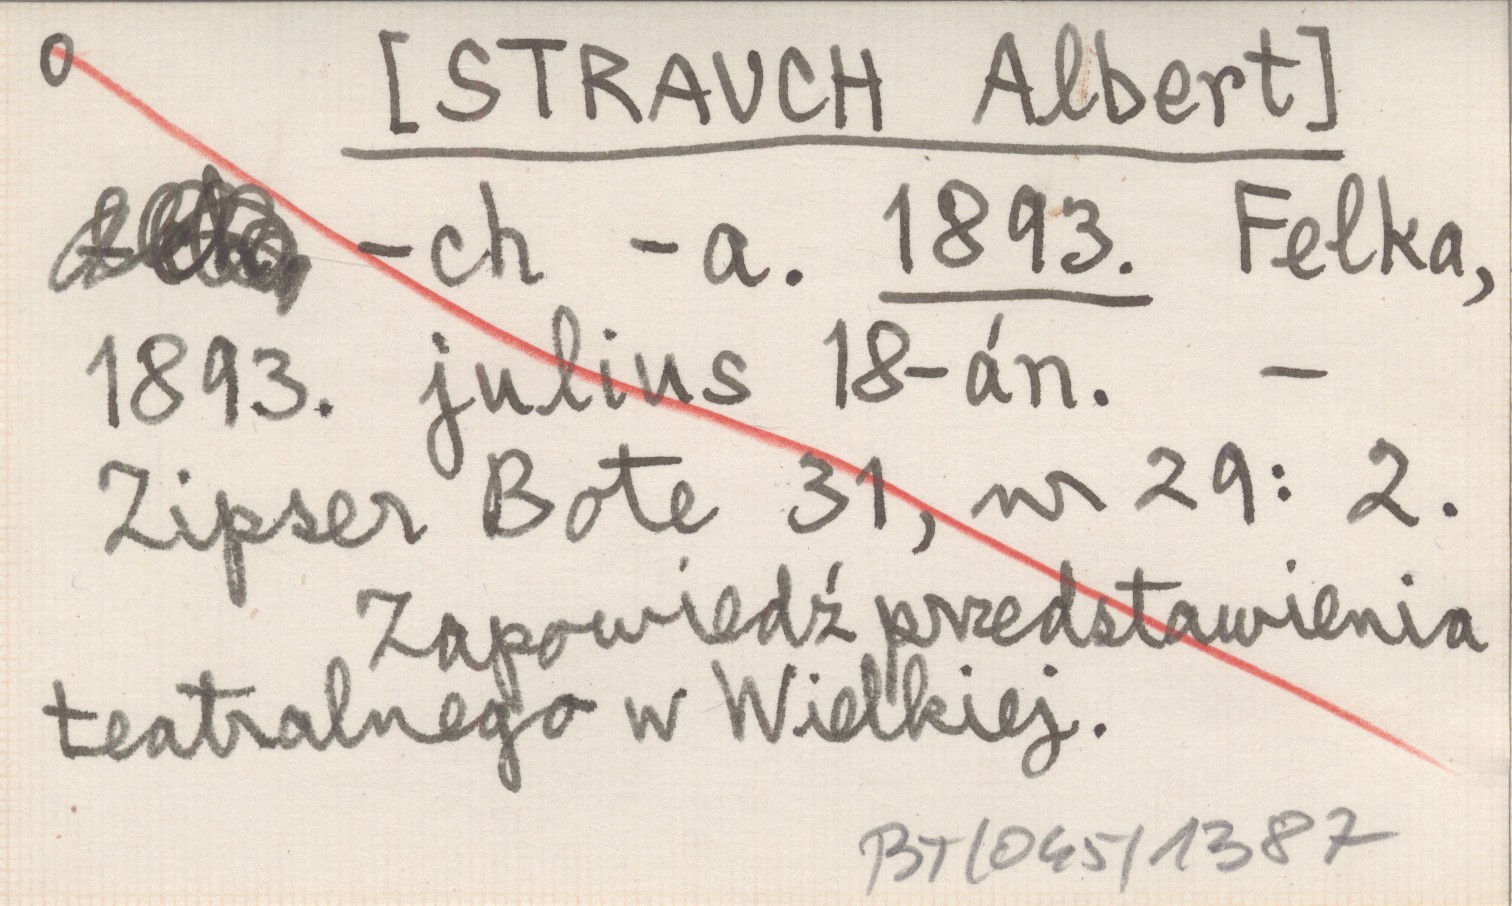 0 [STRAUCH Albert]
-ch -a. 1893. Felka,
1893. julius 18-án. -
Zipser Bote 31, nr 29: 2.
Zapowiedź przedstawienia
teatralnego w Wielkiej.
BT/045/1387